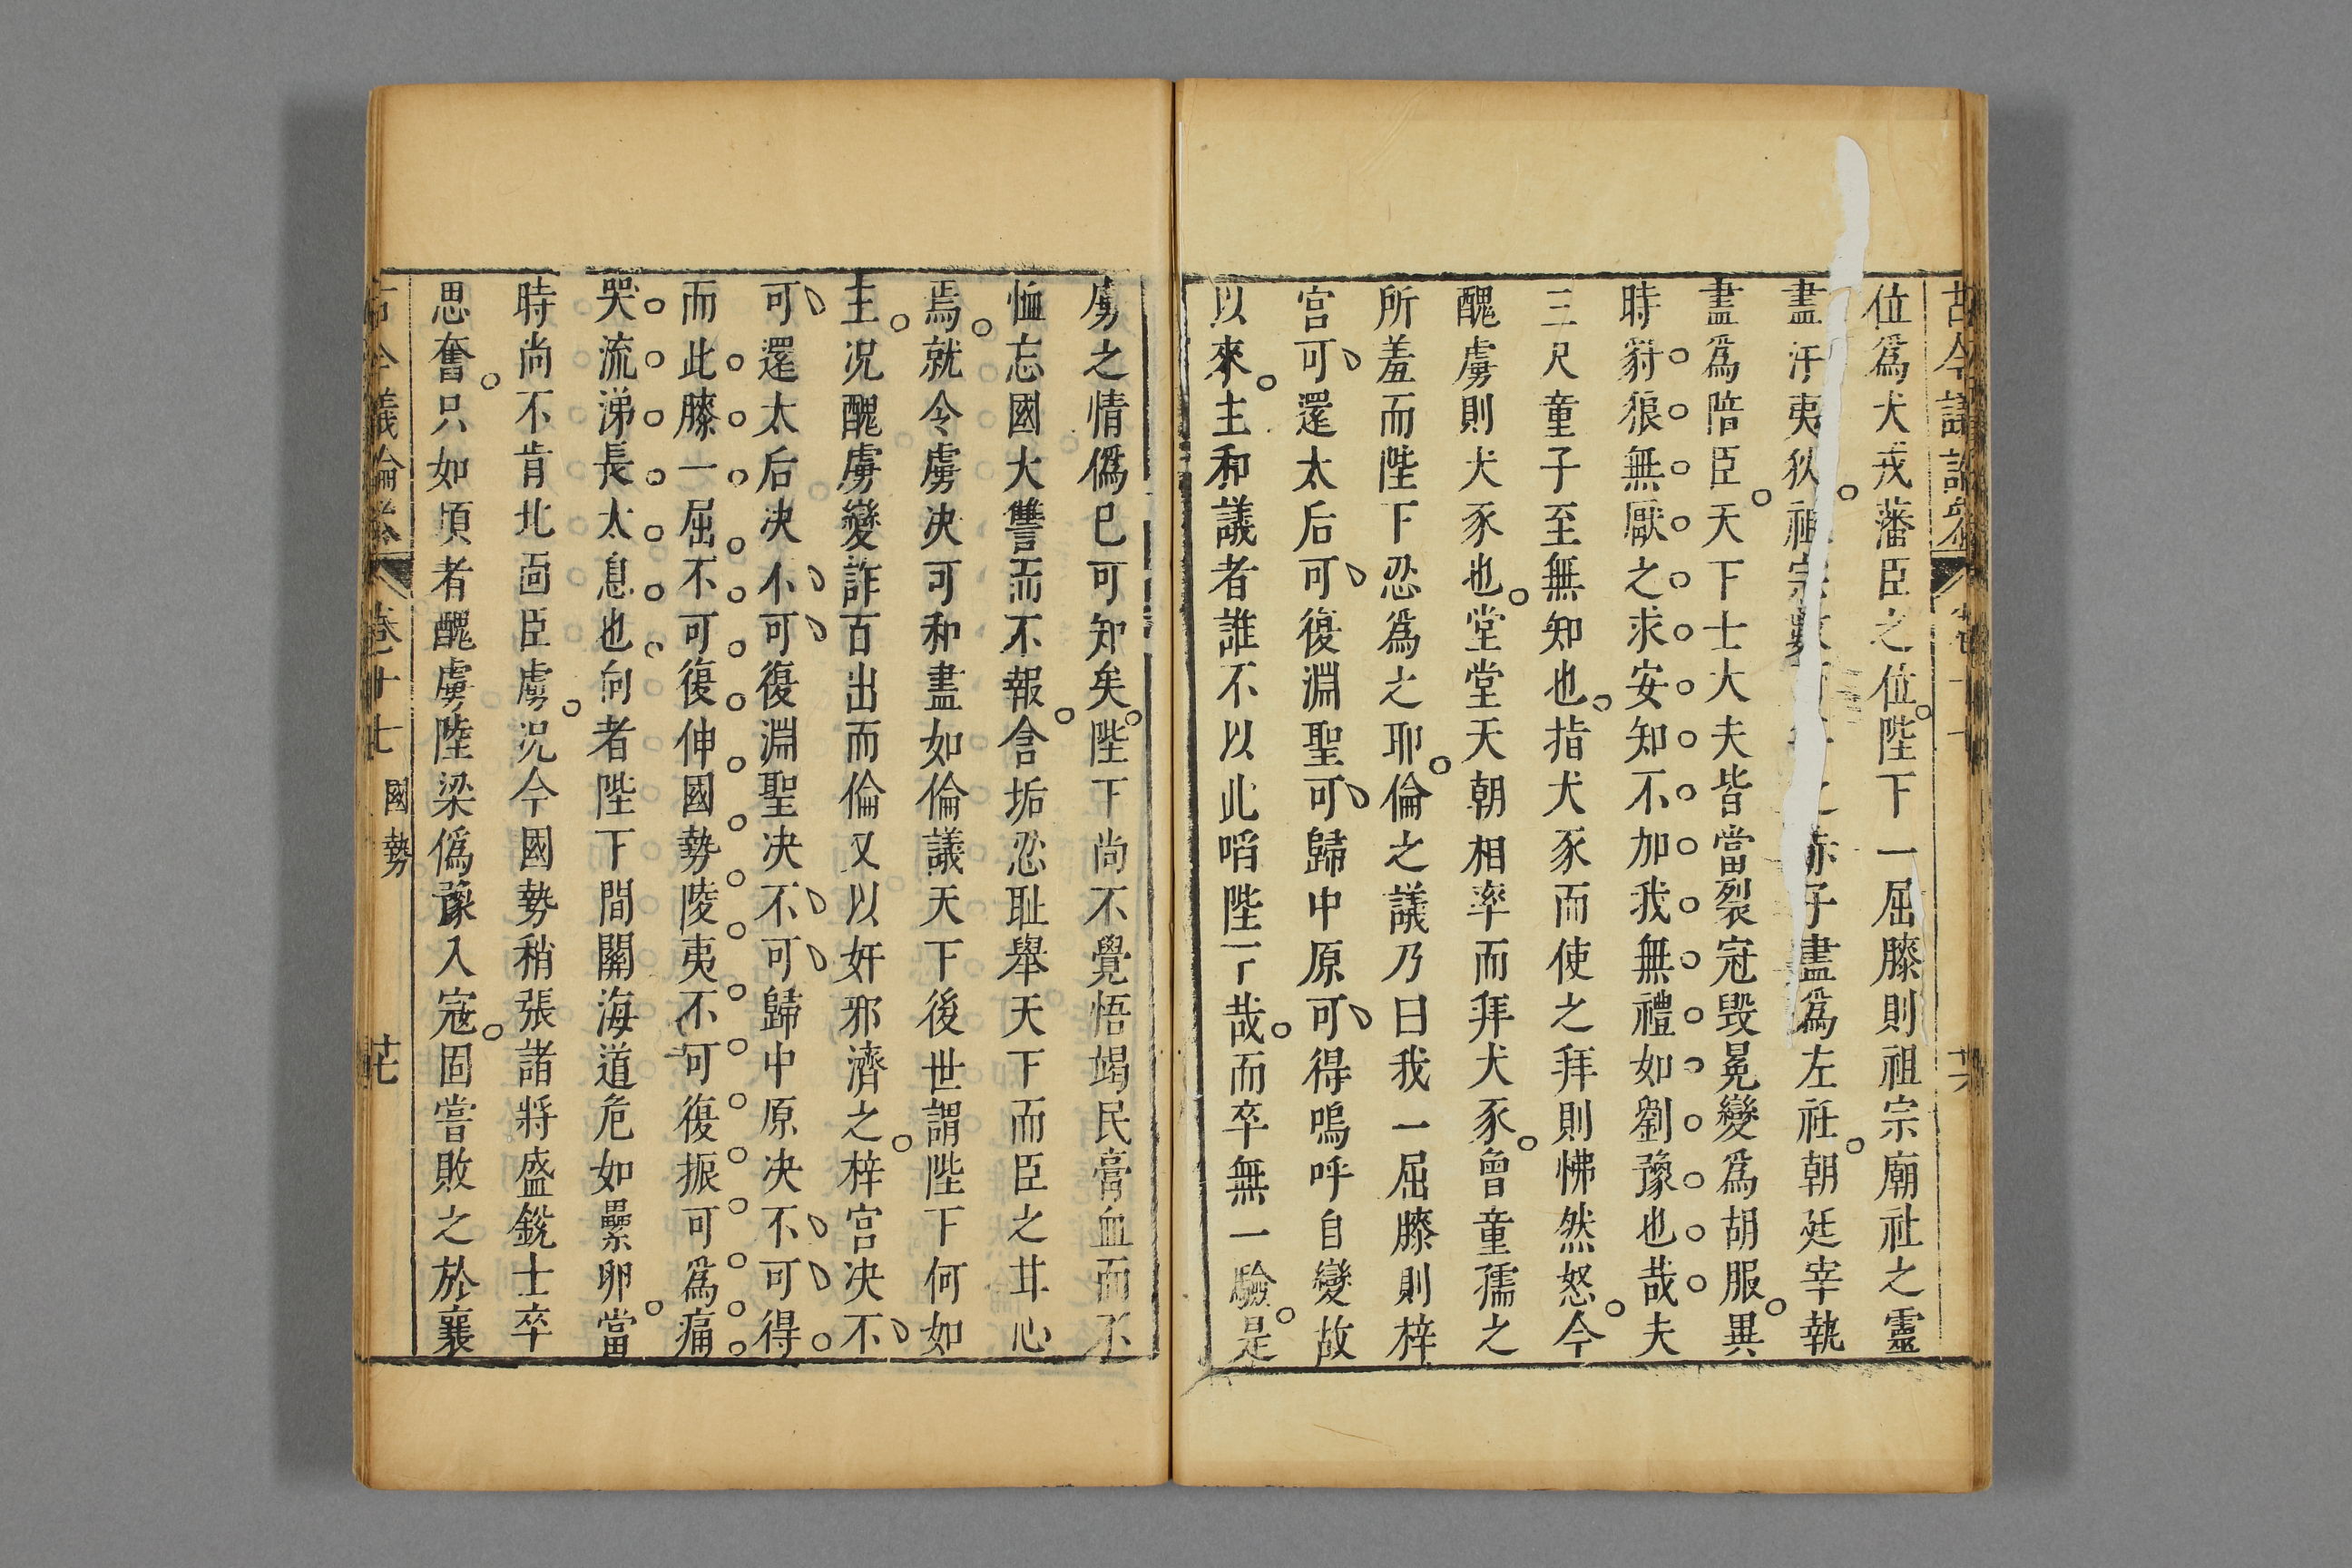 位爲犬戎藩臣之位陛下一屈膝則祖宗廟社之靈
盡汙夷狄祖宗數之赤子盡爲左袵朝廷宰執
盡爲陪臣天下士大夫皆當裂冠毀冕變爲胡服異
時豺狼無厭之求安知不加我無禮如劉豫也哉夫
三尺童子至無知也指犬豕而使之拜則怫然怒今
醜虜則犬豕也堂堂天朝相率而拜犬豕曾童孺之
所羞而陛下忍爲之耶倫之議乃曰我一屈膝則梓
宮可還太后可復淵聖可歸中原可得嗚呼自變故
以來主和議者誰不以此啗陛下哉而卒無一驗是
虜之情僞已可知矣陛下尚不覺悟竭民膏血而不
恤忘國大讐而不報含垢忍耻舉天下而臣之甘心
焉就令虜决可和盡如倫議天下後世謂陛下何如
主况醜虜變詐百出而倫又以奸邪濟之梓宮决不
可還太后决不可復淵聖决不可歸中原决不可得
而此膝一屈不可復伸國勢陵夷不可復振可爲痛
哭流涕長太息也向者陛下間關海道危如累卵當
時尚不肯北面臣虜况今國勢稍張諸將盛銳士卒
思奮只如頃者醜虜陸梁僞豫入寇固嘗敗之於襄
古今議論參 卷十七 國勢